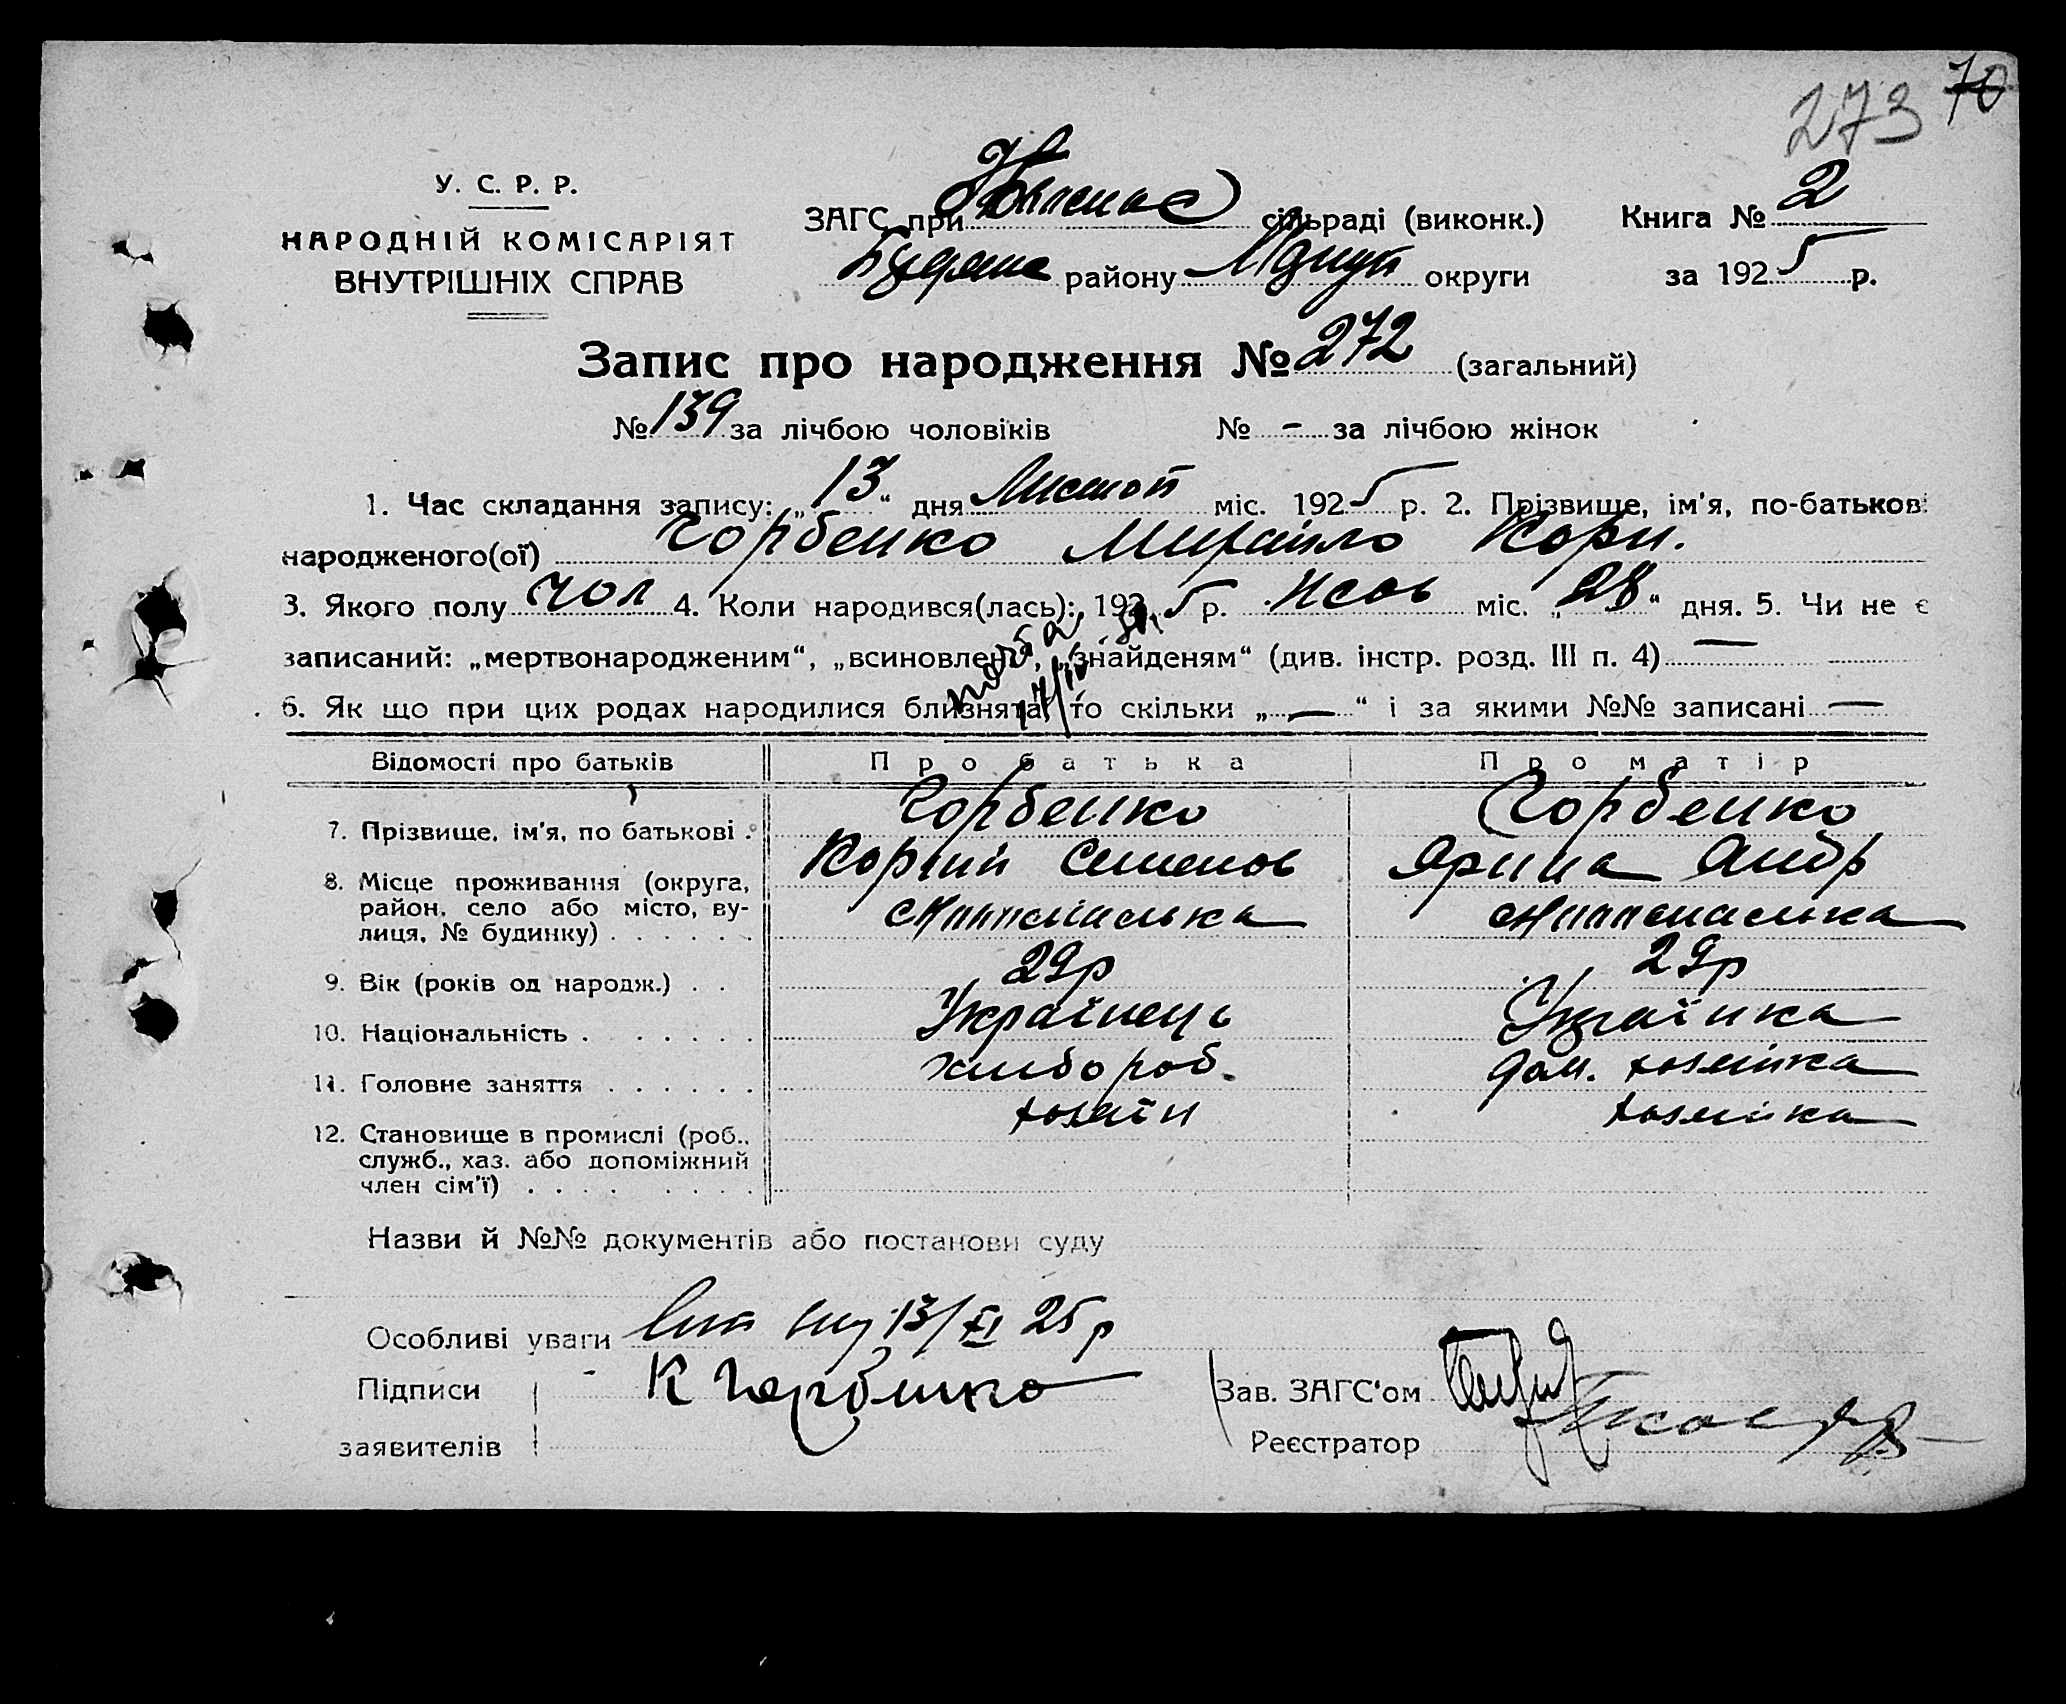 273 70
У. С. Р. Р.
НАРОДНІЙ КОМІСАРІЯТ
ВНУТРІШНІХ СПРАВ
ЗАГС при сільраді (виконк.) Книга № 2
району округи за 1925 р.
Запис про народження № 272 (загальний)
№ 139 за лічбою чоловіків № - за лічбою жінок
1. Час складання запису: „13“ дня Листоп міс. 1925 р. 2. Прізвище, ім'я, по-батькові
народженого(ої) Горбенко Михайло Корн.
3. Якого полу чол 4. Коли народився(лась): 1925 р. міс. „28“ дня. 5. Чи не є
записаний: „мертвонародженим“, „всиновлені“, „знайденям“ (див. інстр. розд. III п. 4) —
6. Як що при цих родах народилися близнята, то скільки „—“ і за якими №№ записані —
Відомості про батьків Про батька Про матір
7. Прізвище, ім'я, по батькові . Горбенко Горбенко
Корній Семенов Ярина Андр
8. Місце проживання (округа,
район, село або місто, ву-
лиця, № будинку) . . . . . .
9. Вік (років од народж.) . . 29р 29р
10. Національність . . . . . . Українець Українка
11. Головне заняття . . . . . . хлібороб. дом. хозяйка
12. Становище в промислі (роб., хозяїн хозяйка
служб., хаз. або допоміжний
член сім'ї) . . . . . . . .
Назви й №№ документів або постанови суду
Особливі уваги 13/XI 25р
Підписи К Горбенко Зав. ЗАГС'ом
заявителів Реєстратор